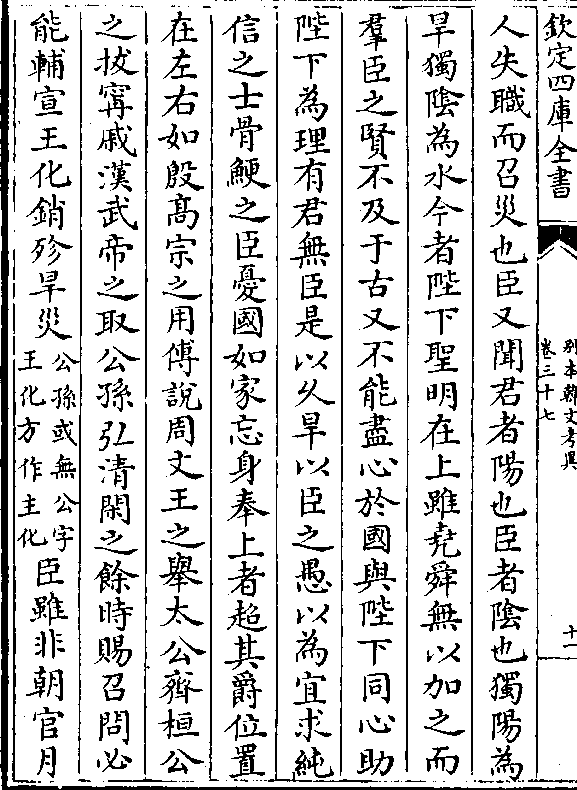 欽定四庫全書
別本韓文考異
卷三十七
十一
人失職而召災也臣又聞君者陽也臣者陰也獨陽為
旱獨陰為水今者陛下聖明在上雖堯舜無以加之而
羣臣之賢不及于古又不能盡心於國與陛下同心助
陛下為理有君無臣是以久旱以臣之愚以為宜求純
信之士骨鯁之臣憂國如家忘身奉上者超其爵位置
在左右如殷髙宗之用傅說周文王之舉太公齊桓公
之拔甯戚漢武帝之取公孫弘清閑之餘時賜召問必
能輔宣王化銷殄旱災公孫或無公字王化方作主化臣雖非朝官月